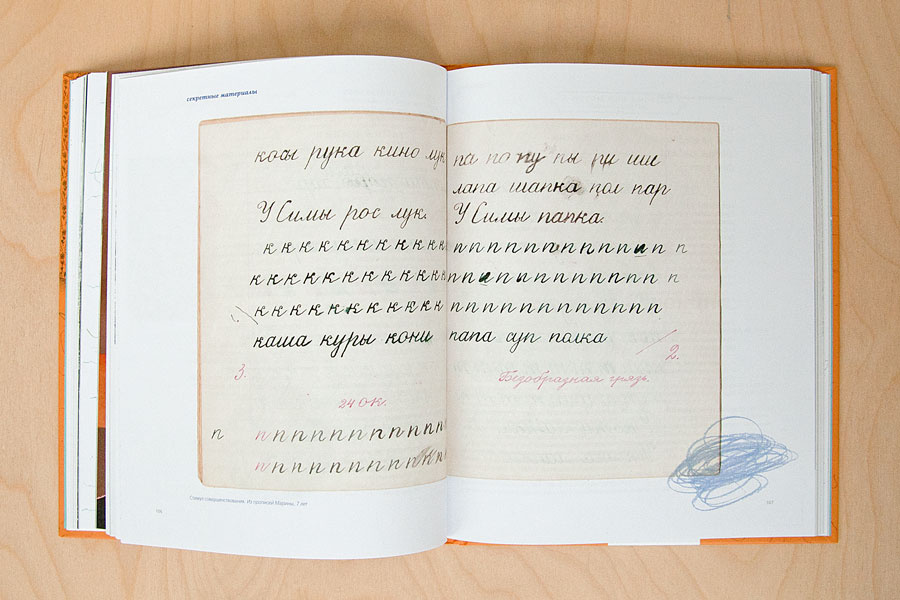 секретные материалы
косы рука кино лук
У Симы рос лук.
кккккккккккк
ккккккккккккк
ккккккккккккк
каша куры кони
3.
24 ок.
п ппппппппппп
ппппппппппп
Стимул совершенствования. Из прописей Марины, 7 лет
па по пу пы ри ши
лапа шапка пол пар
У Симы папка.
ппппппппппппп п
ппппппппппппп п
ппппппппппппп
папа суп полка
2.
Безобразная грязь.